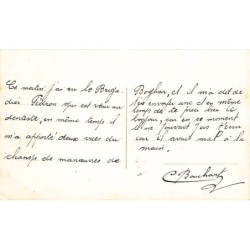 Ce matin j'ai vu le Briga-
dier Pédron qui est venu au
dentiste, en même temps il
m'a apporté deux vues du
champs de manœuvres de
Boghar, et il m'a dit de
t'en envoyer une et en même
temps de te
bonjour, car en ce moment
il ne pouvait pas t'écrire
car il avait mal à la
main.
C. Bouchart